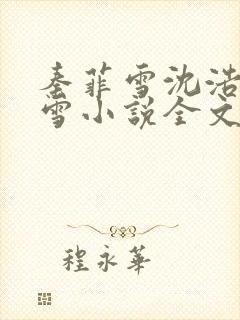 秦菲雪沈浩
雪小说全文
程永華